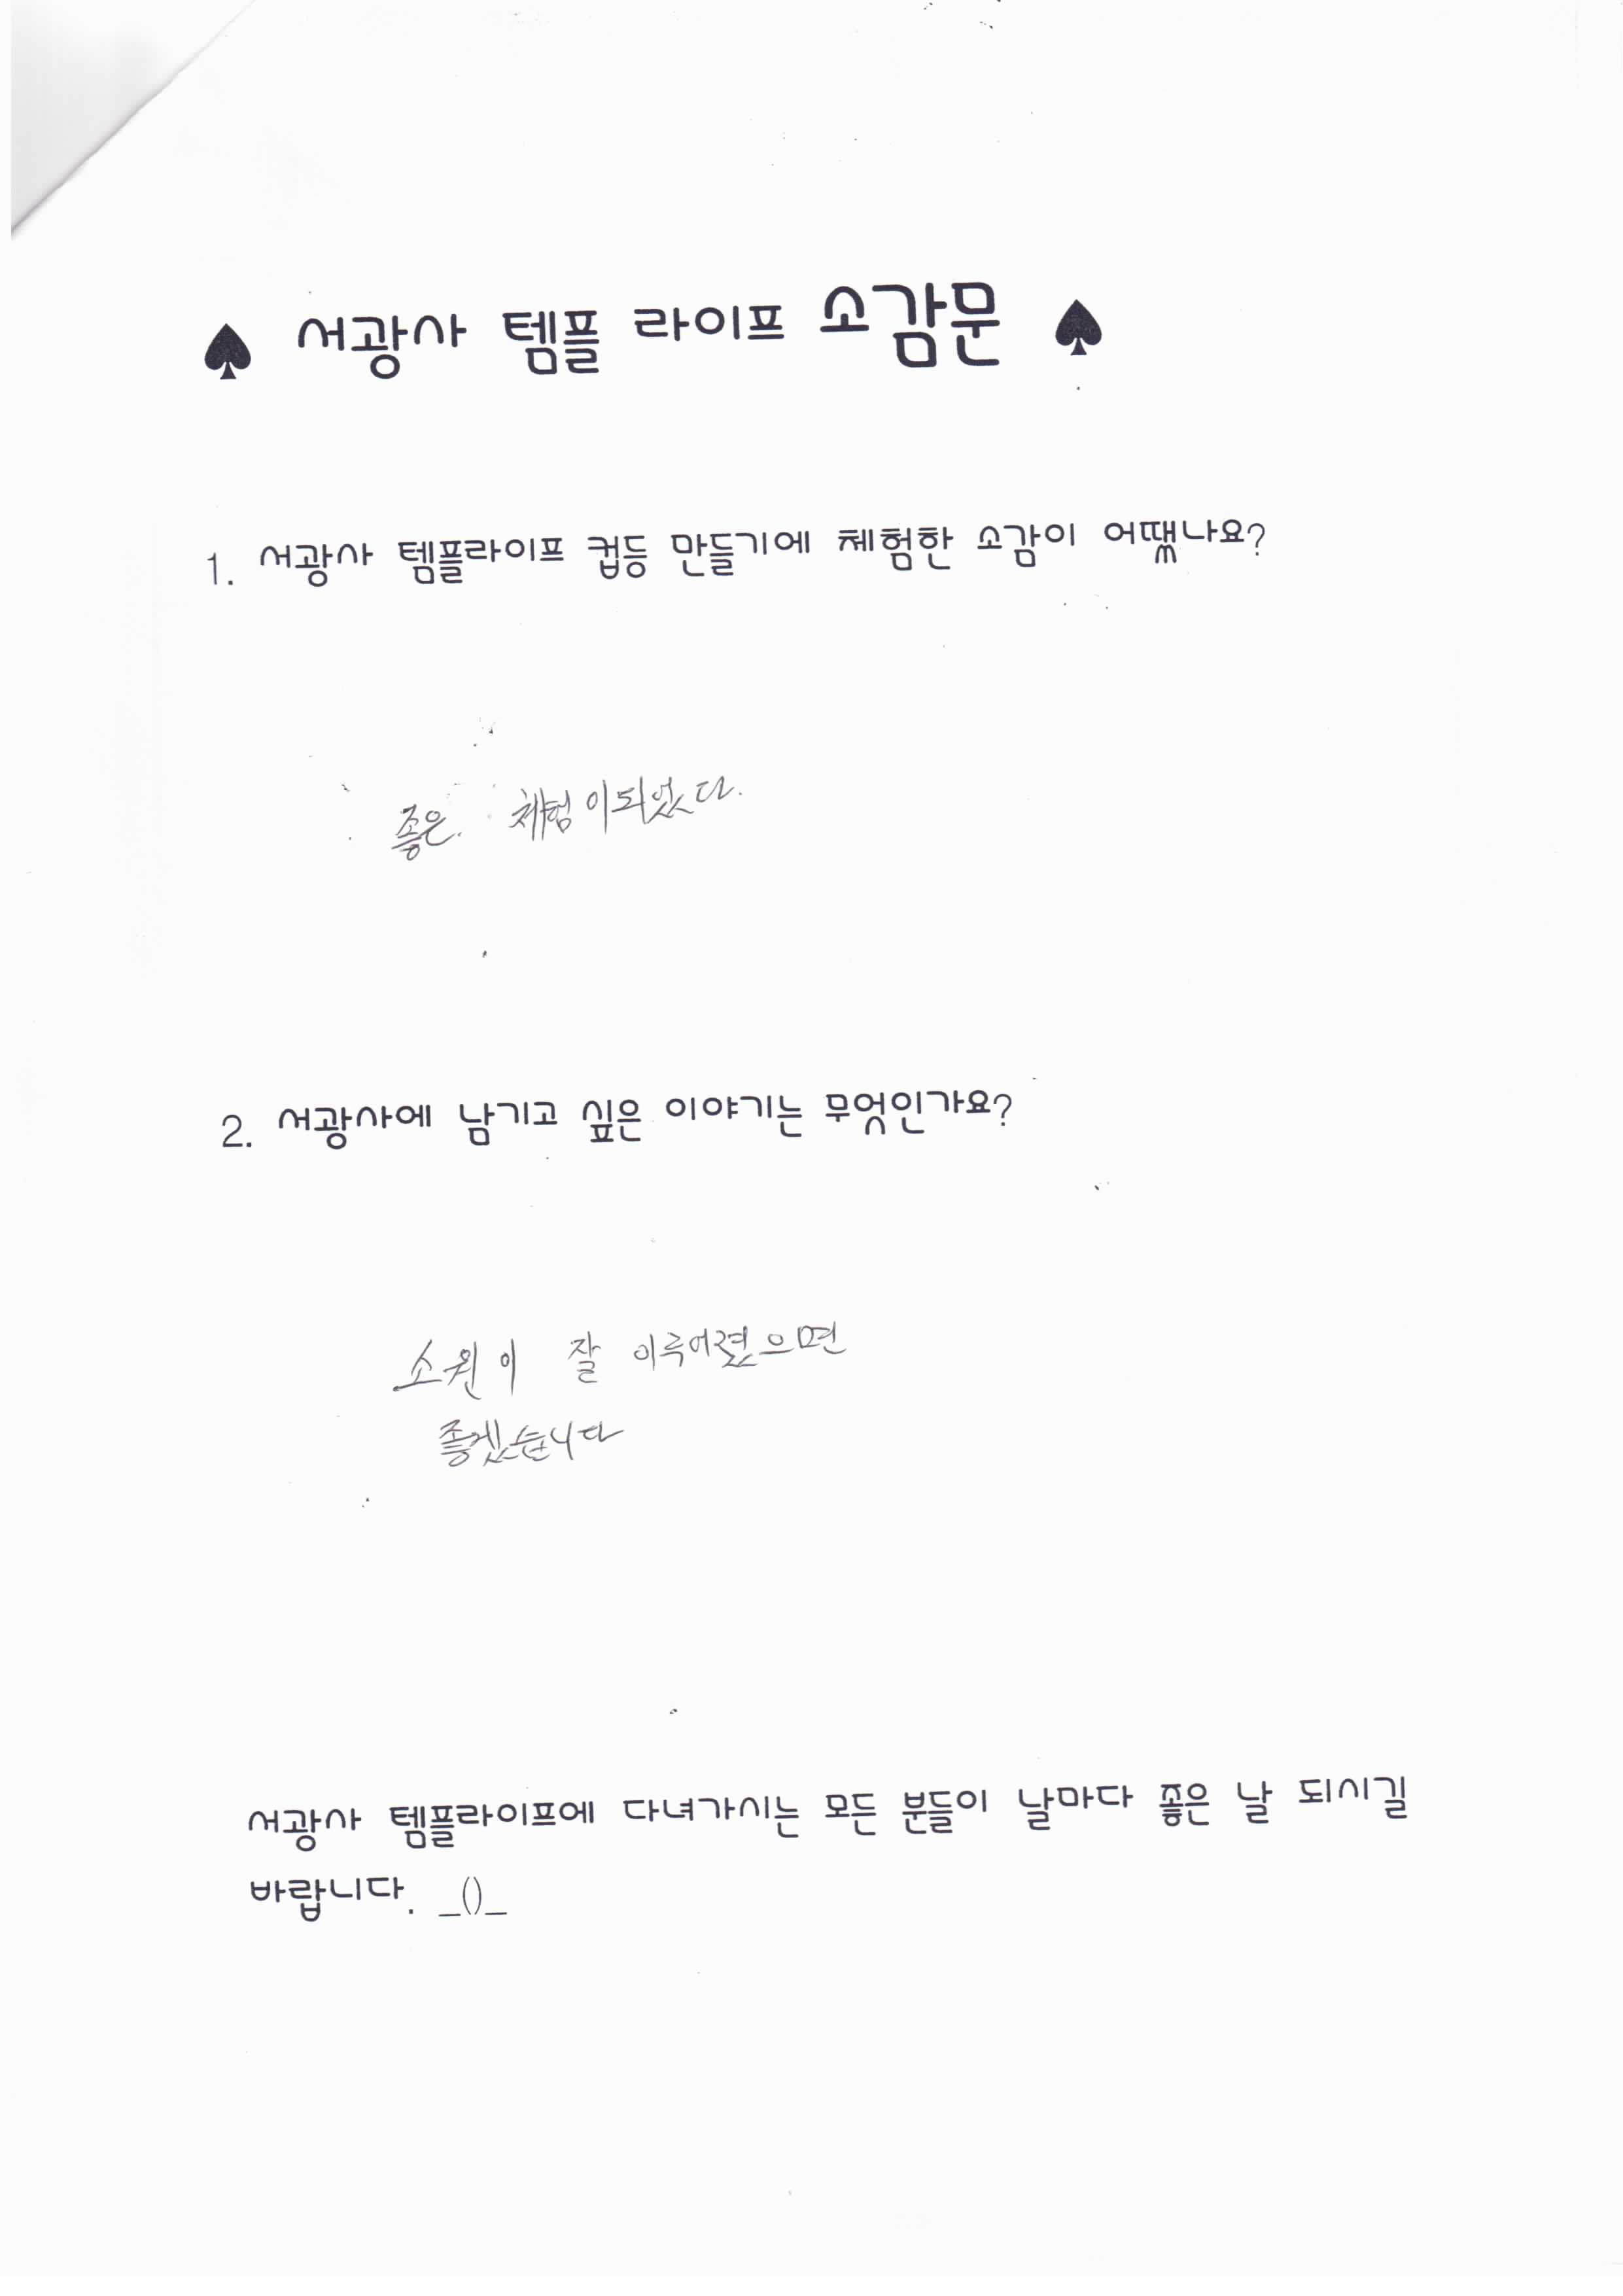 ♠ 서광사 템플 라이프 소감문 ♠
1. 서광사 템플라이프 컵등 만들기에 체험한 소감이 어땠나요?
좋은. 체험이되었다.
2. 서광사에 남기고 싶은 이야기는 무엇인가요?
소원이 잘 이루어졌으면
좋겠습니다
서광사 템플라이프에 다녀가시는 모든 분들이 날마다 좋은 날 되시길
바랍니다. _()_